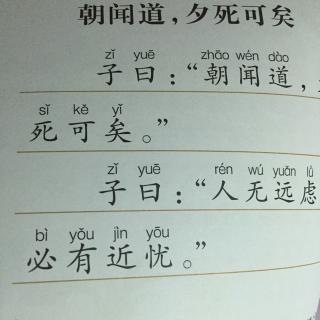 朝闻道，夕死可矣
zǐ yuē zhāo wén dào
子曰：“朝闻道，
sǐ kě yǐ
死可矣。”
zǐ yuē rén wú yuǎn lǜ
子曰：“人无远虑
bì yǒu jìn yōu
必有近忧。”